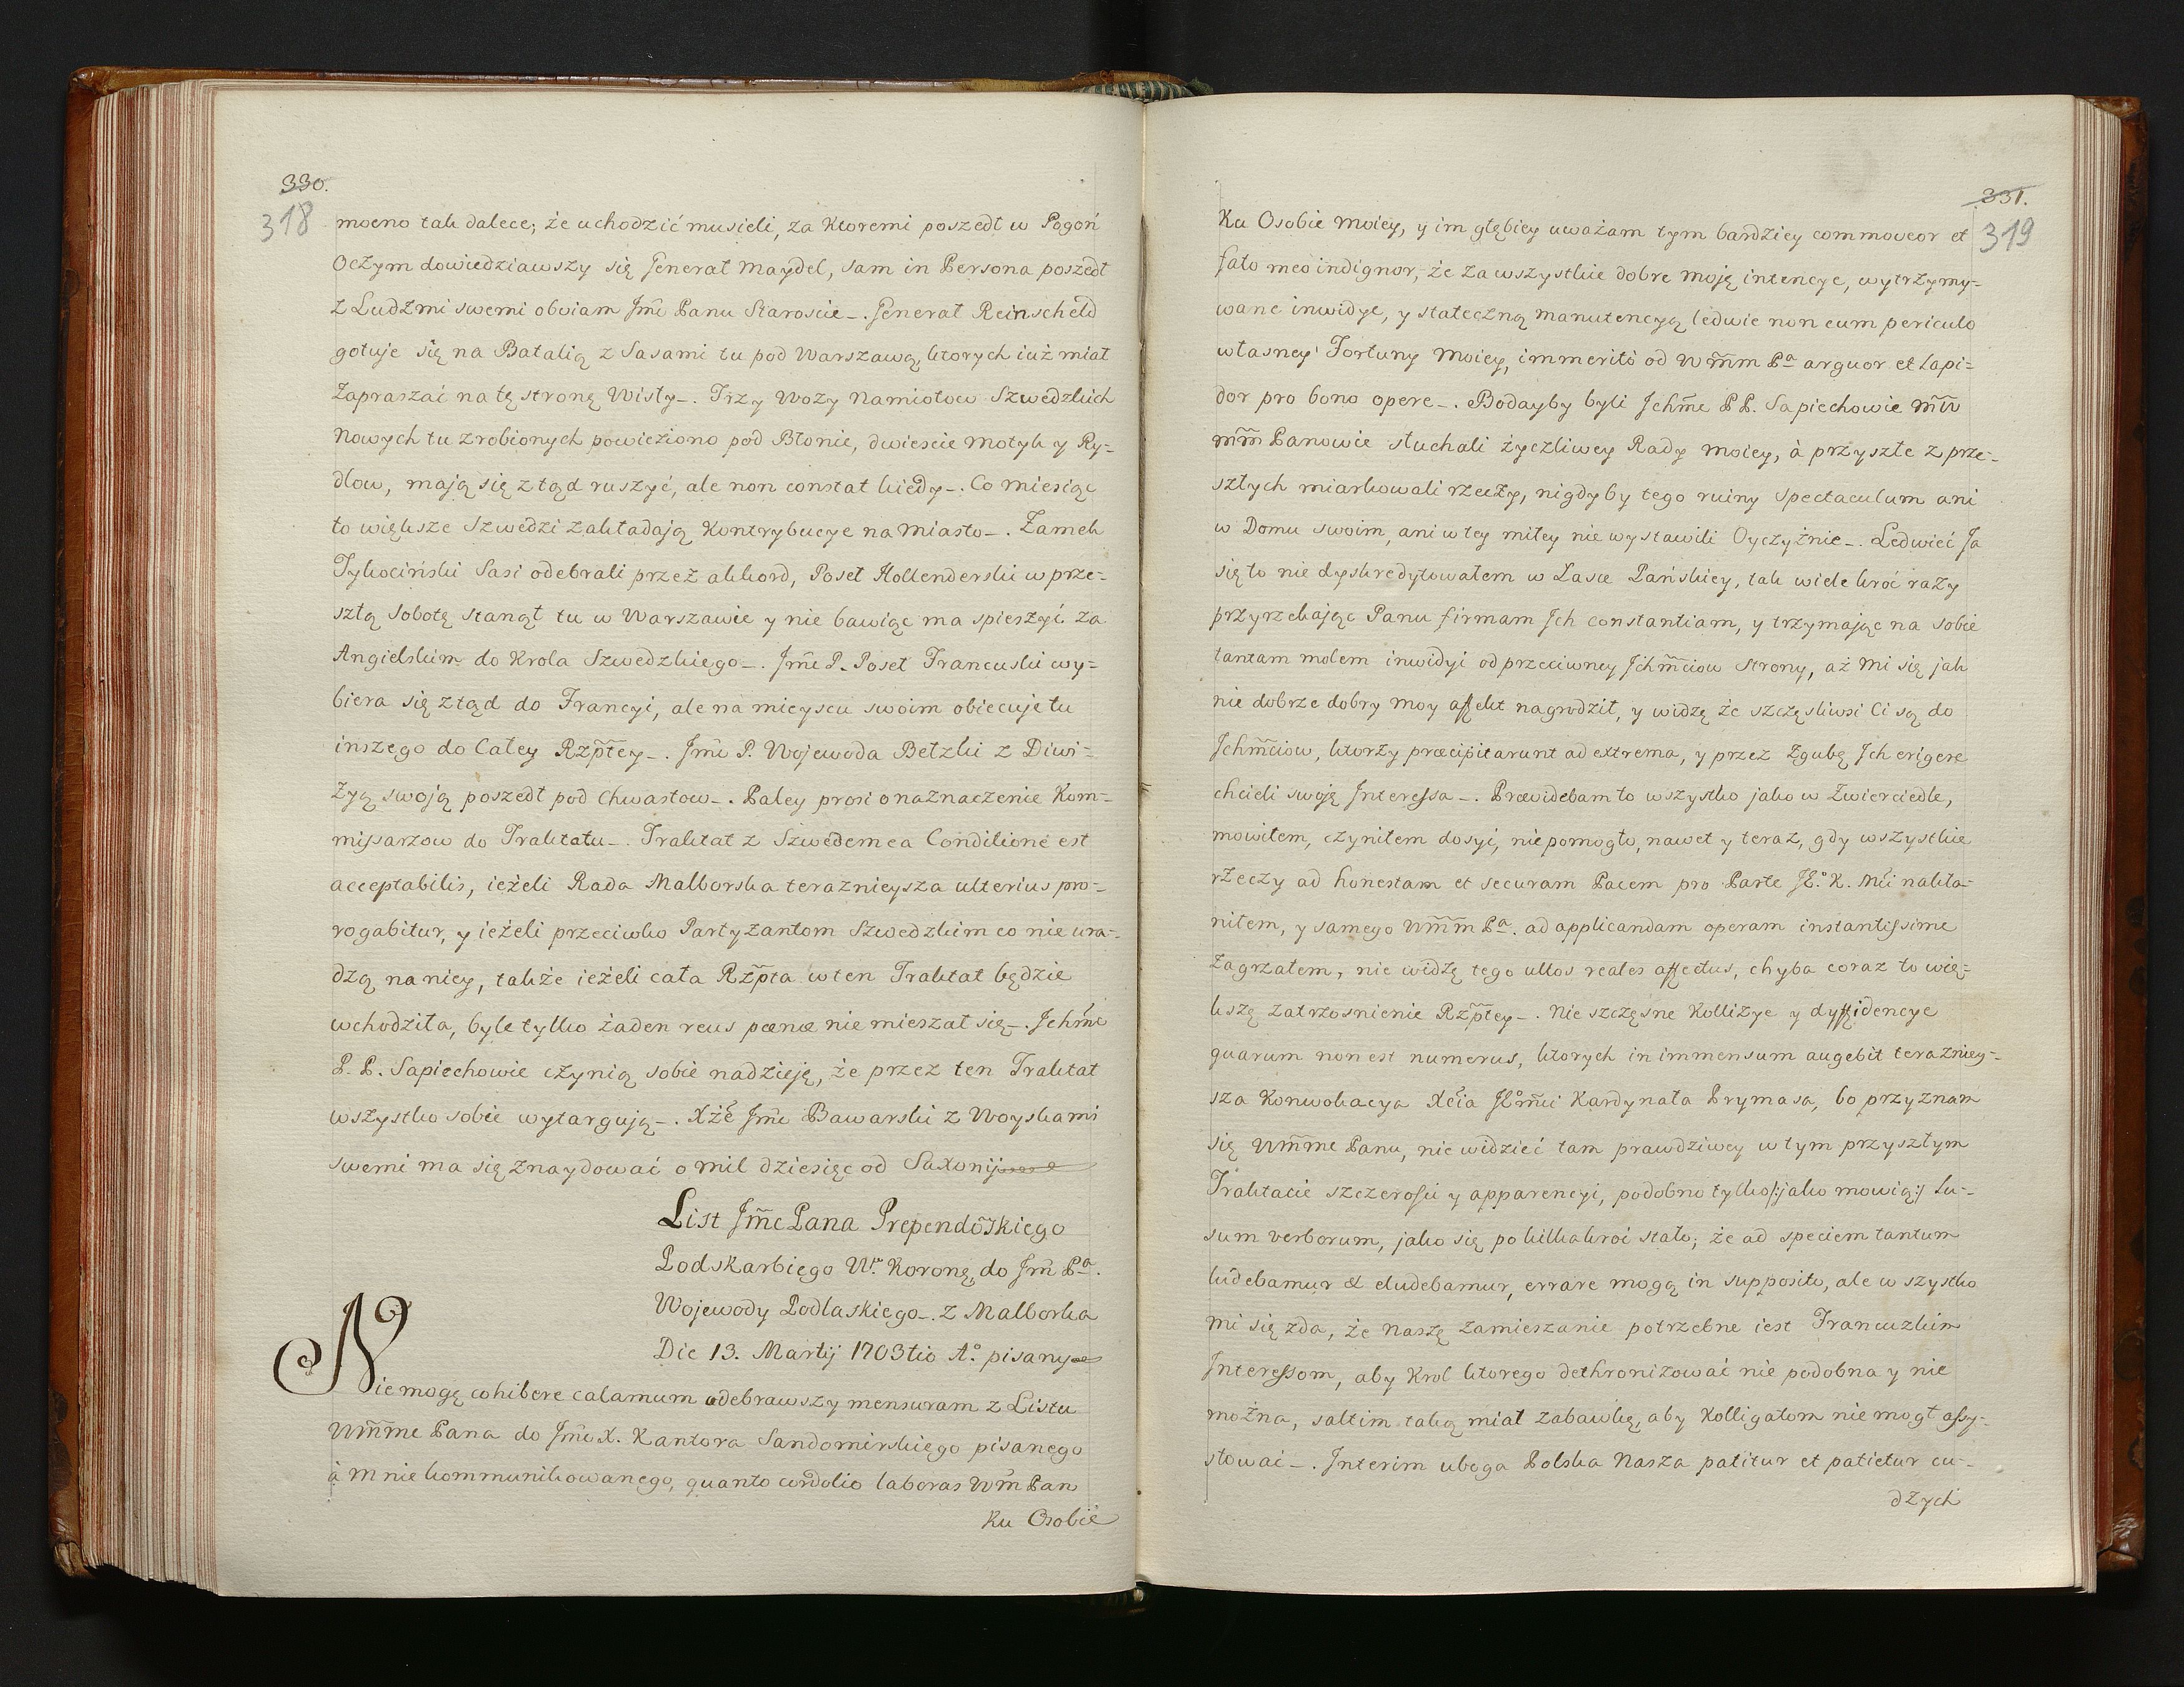 330.
318
mocno tak dalece; że uchodzić musieli, za ktoremi poszedł w Pogoń
Oczym dowiedziawszy się Generał Maydel, sam in Persona poszedł
z Ludźmi swemi obviam Jm̃ći Panu Staroscie_. Generał Reinscheld
gotuje się na Batalią z Sasami tu pod Warszawą, ktorych iuż miał
Zapraszać na tę stronę Wisły_. Trzy Wozy Namiotow Szwedzkich
Nowych tu zrobionych powieziono pod Błonie, dwieście motyk y Ry-
dlow, mają się ztąd ruszyć, ale non constat kiedy_. Co miesiąc
to większe Szwedzi zakładają Kontrybucye na Miasto_. Zamek
Tykociński Sasi odebrali przez akkord, Poseł Hollenderski w prze-
szłą Sobotę stanął tu w Warszawie y nie bawiąc ma spieszyć za
Angielskim do Krola Szwedzkiego_. Jm̃ć P. Poseł Francuski wy-
biera się ztąd do Francyi, ale na mieyscu swoim obiecuje tu
inszego do Całey Rzp̃tey_. Jm̃ć P. Wojewoda Bełzki z Diwi-
zyą swoją poszedł pod Chwastow_. Paley prosi o naznaczenie Kom-
missarzow do Traktatu_. Traktat z Szwedem ea Conditione est
acceptabilis, ieżeli Rada Malborska teraznieysza ulterius pro-
rogabitur, y ieżeli przeciwko Partyzantom Szwedzkim co nie ura-
dzą na niey, także ieżeli cała Rzp̃ta w ten Traktat będzie
wchodziła, byle tylko żaden reus pœnæ nie mieszał się_. Jchm̃ć
P. P. Sapiechowie czynią sobie nadzieję, że przez ten Traktat
wszystko sobie wytargują_. Xżę Jm̃ć Bawarski z Woyskami
swemi ma się znaydować o mil dziesięc od Saxonij
List Jm̃ć Pana Prependõskiego
Podskarbiego W. Koronẽ, do Jm̃ Pa.
Wojewody Podlaskiego_. z Malborka
Die 13. Martij 1703tio A.o pisany
Nie mogę cohibere calamum odebrawszy mensuram z Listu
Wm̃me Pana do Jm̃ći X. Kantora Sandomirskiego pisanego
à mnie kommunikowanego, quanto cordolio laboras Wm̃ Pan
Ku Osobie
331.
319
Ku Osobie moiey, y im głębiey uważam tym bardziey commoveor et
fato meo indignor, że za wszystkie dobre moję intencye, wytrzymy-
wane inwidye, y stateczną manutencyą ledwie non cum periculo
własney Fortuny moiey, immeritò od Wm̃m Pa arguor et lapi-
dor pro bono opere_. Bodayby byli Jchm̃ć P P. Sapiechowie m̃w
mm̃ Panowie słuchali życzliwey Rady moiey, à przyszłe z prze-
szłych miarkowali rzeczy, nigdyby tego ruiny spectaculum ani
w Domu swoim, ani w tey miłey nie wystawili Oyczyźnie_. Ledwieć Ja
się to nie dyskredytowałem w Łasce Pańskiey, tak wiele kroć razy
przyrzekając Panu firmam Jch constantiam, y trzymając na sobie
tantam molem inwidyi od przeciwney Jchm̃ciow strony, aż mi się jak
nie dobrze dobry moy affekt nagrodził, y widzę że szczęsliwsi Ci są do
Jchm̃ciow, ktorzy præcipitarunt ad extrema, y przez zgubę Jch erigere
chcieli swoję Interessa_. Prævidebam to wszystko jako w Zwierciedle,
mowiłem, czyniłem dosyć, nie pomogło, nawet y teraz, gdy wszystkie
rzeczy ad honestam et securam Pacem pro Parte JE.o K. Mći nakła-
niłem, y samego Wm̃m Pa. ad applicandam operam instantissime
zagrzałem, nie widzę tego ullos reales affectus, chyba coraz to wię-
kszę zatrzosnienie Rzp̃tey_. Nie szczęsne Kollizye y dyffidencye
quarum non est numerus, ktorych in immensum augebit teraznieg-
sza Konwokacya Xcia JEom̃ći Kardynała Prymasa, bo przyznam
się Wm̃me Panu, nie widzieć tam prawdziwey w tym przyszłym
Traktacie szczerości y apparencyi, podobno tylko |:jako mowią:| lu-
sum verborum, jako się po kilkakroć stało; że ad speciem tantum
ludebamur & eludebamur, errare mogą in supposito, ale wszystko
mi się zda, że naszę zamieszanie potrzebne iest Francuzkim
Interessom, aby Krol ktorego dethronizować nie podobna y nie
można, saltim taką miał zabawkę, aby Kolligatom nie mogł assy-
stować_. Interim uboga Polska Nasza patitur et patietur cu-
dzych